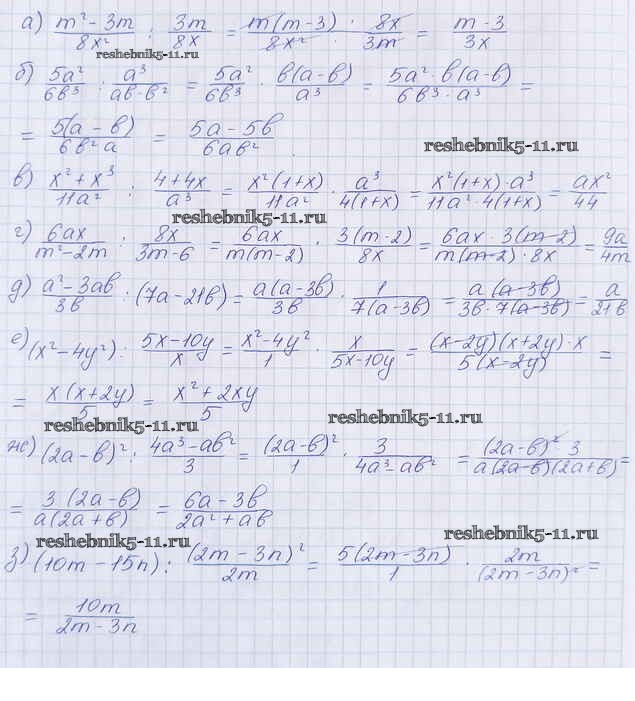 а) (m² - 3m)/(8x²) : (3m)/(8x) = (m(m-3) · 8x)/(8x² · 3m) = (m-3)/(3x)
reshebnik5-11.ru
б) (5a²)/(6b³) : (a³)/(ab-b²) = (5a²)/(6b³) · (b(a-b))/(a³) = (5a² · b(a-b))/(6b³ · a³) =
= (5(a-b))/(6b²a) = (5a-5b)/(6ab²)
reshebnik5-11.ru
в) (x²+x³)/(11a²) : (4+4x)/(a³) = (x²(1+x))/(11a²) · (a³)/(4(1+x)) = (x²(1+x)·a³)/(11a²·4(1+x)) = (ax²)/(44)
reshebnik5-11.ru
г) (6ax)/(m²-2m) : (8x)/(3m-6) = (6ax)/(m(m-2)) · (3(m-2))/(8x) = (6ax · 3(m-2))/(m(m-2) · 8x) = (9a)/(4m)
д) (a²-3ab)/(3b) : (7a-21b) = (a(a-3b))/(3b) · (1)/(7(a-3b)) = (a(a-3b))/(3b·7(a-3b)) = (a)/(21b)
е) (x²-4y²) : (5x-10y)/(x) = (x²-4y²)/(1) · (x)/(5x-10y) = ((x-2y)(x+2y)·x)/(5(x-2y)) =
= (x(x+2y))/(5) = (x²+2xy)/(5)
reshebnik5-11.ru
reshebnik5-11.ru
ж) (2a-b)² : (4a³-ab²)/(3) = ((2a-b)²)/(1) · (3)/(4a³-ab²) = ((2a-b)² 3)/(a(2a-b)(2a+b)) =
= (3(2a-b))/(a(2a+b)) = (6a-3b)/(2a²+ab)
reshebnik5-11.ru
reshebnik5-11.ru
з) (10m-15n) : ((2m-3n)²)/(2m) = (5(2m-3n))/(1) · (2m)/((2m-3n)²) =
= (10m)/(2m-3n)